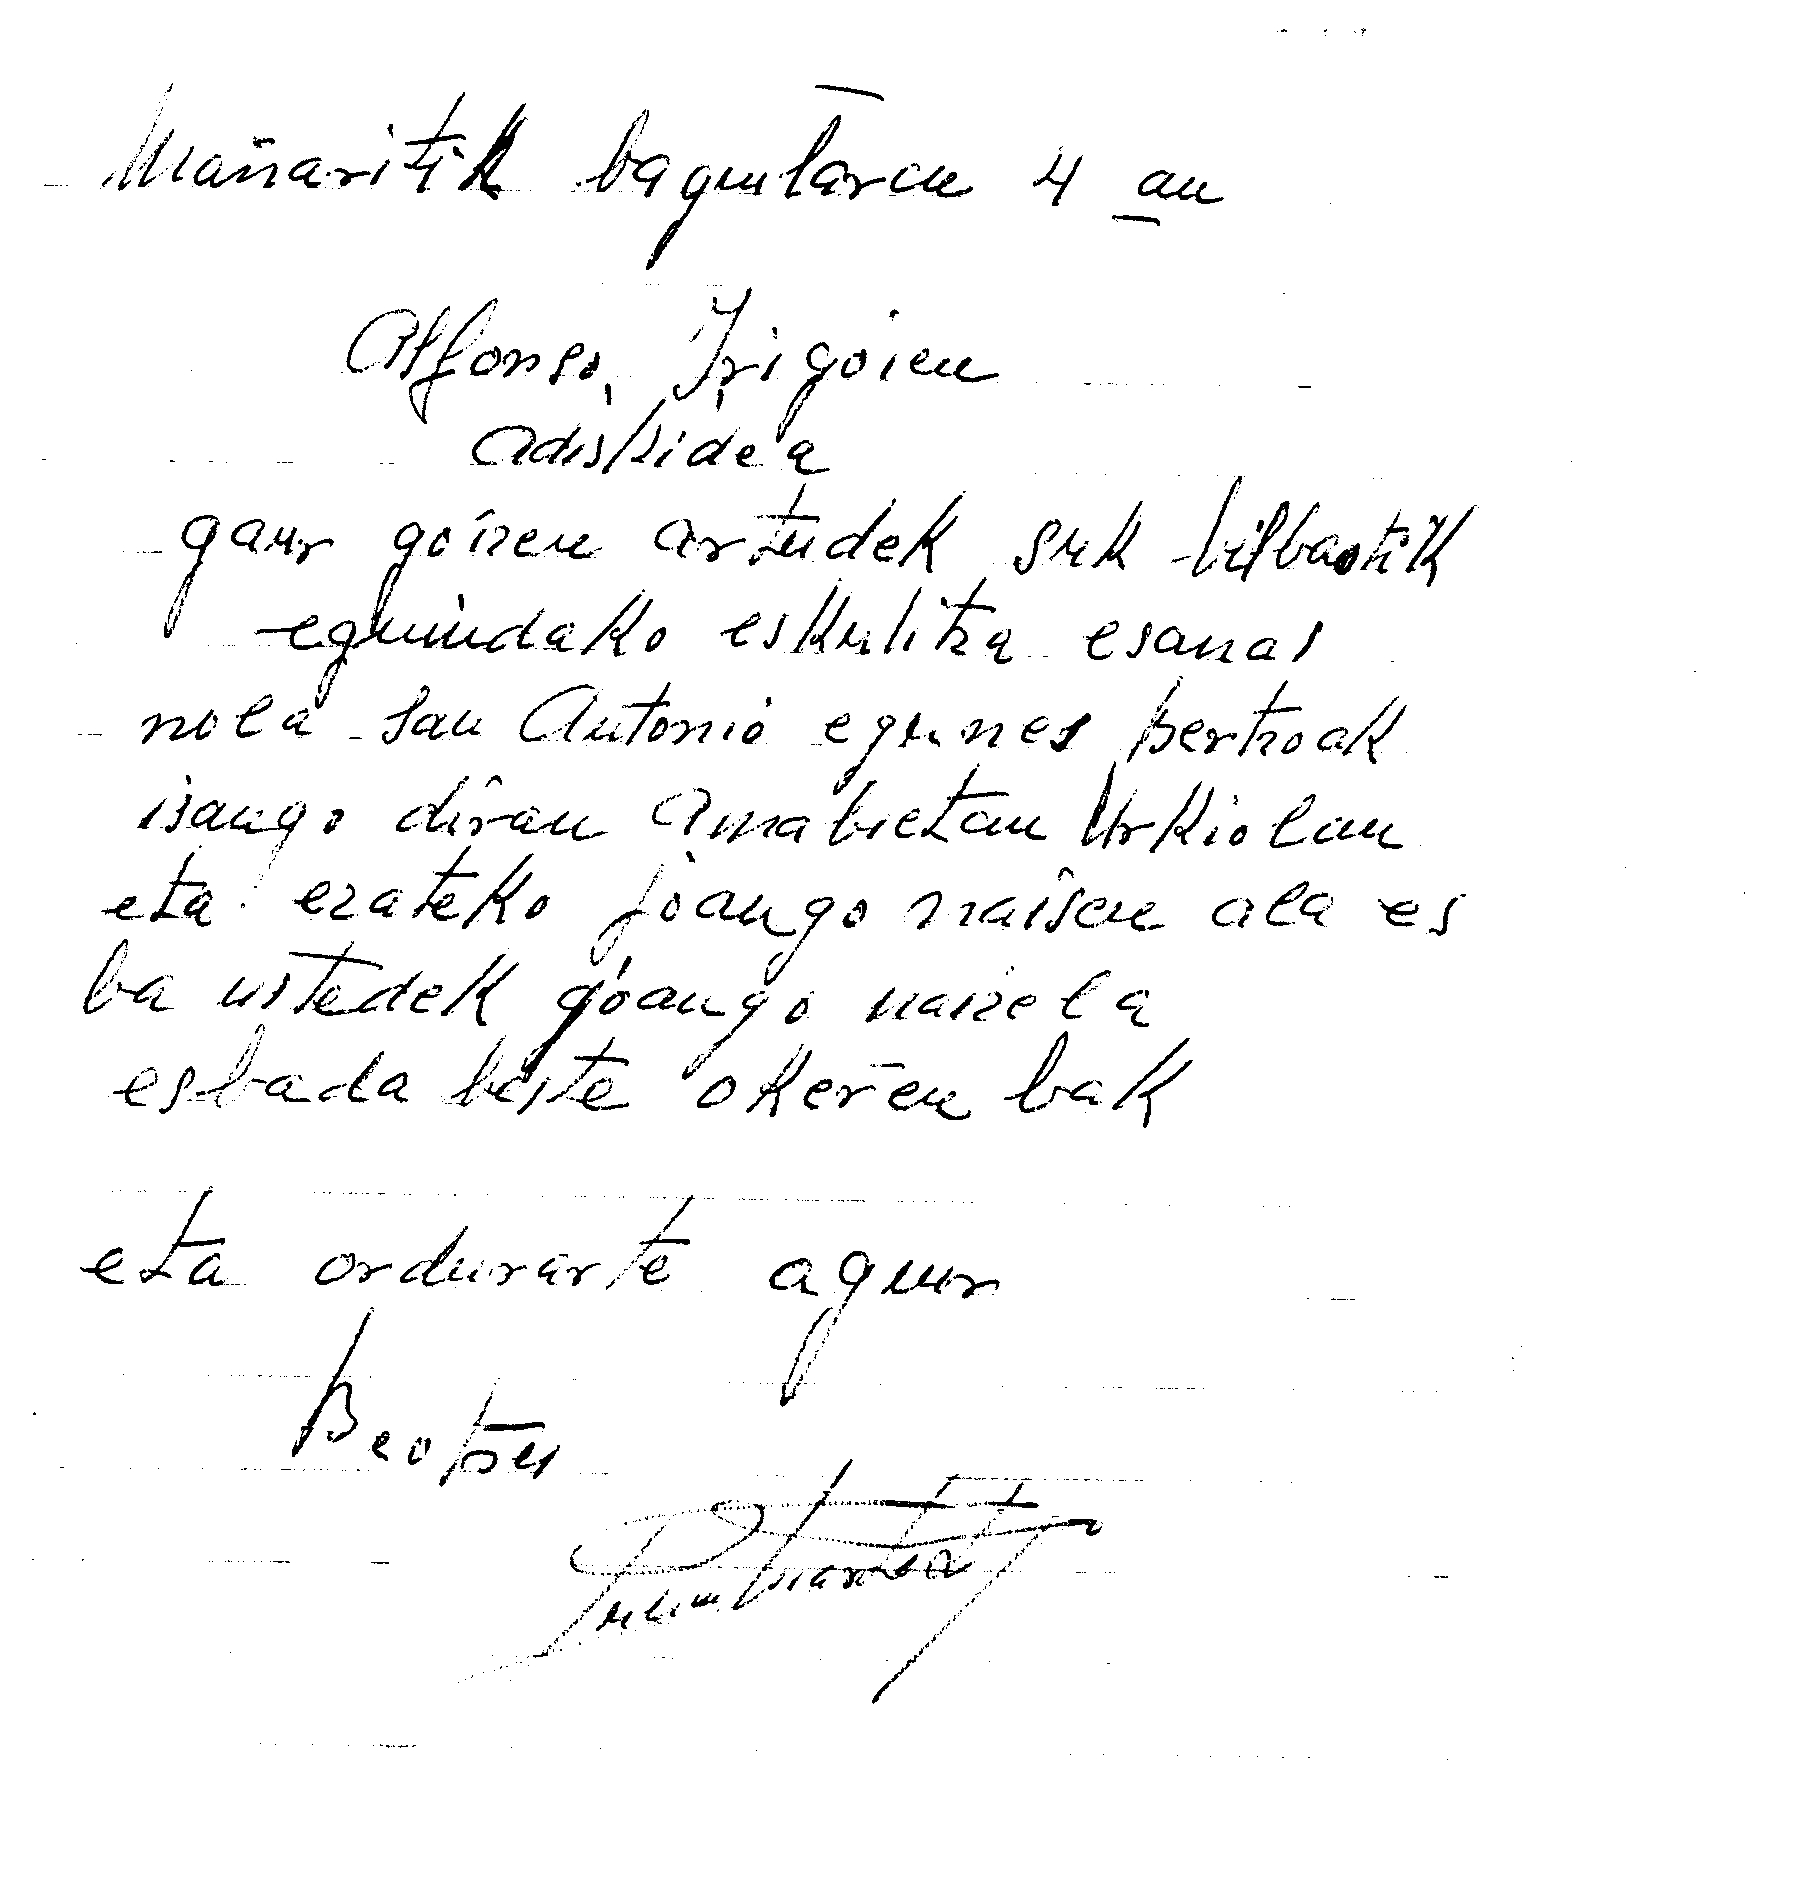 Mañaritik baguilaren 4 an
Alfonso, Irigoien
adiskidea
gaur goizen artudek suk bilbaotik
eguindako eskulitza esanas
nola san Antonio egunes bertzoak
isango diran Amabietan Urkiolan
eta ezateko joango naisen ala es
ba ustedek goango naizela
esbada beste okeŕen bak
eta ordurarte agur
Beotzu